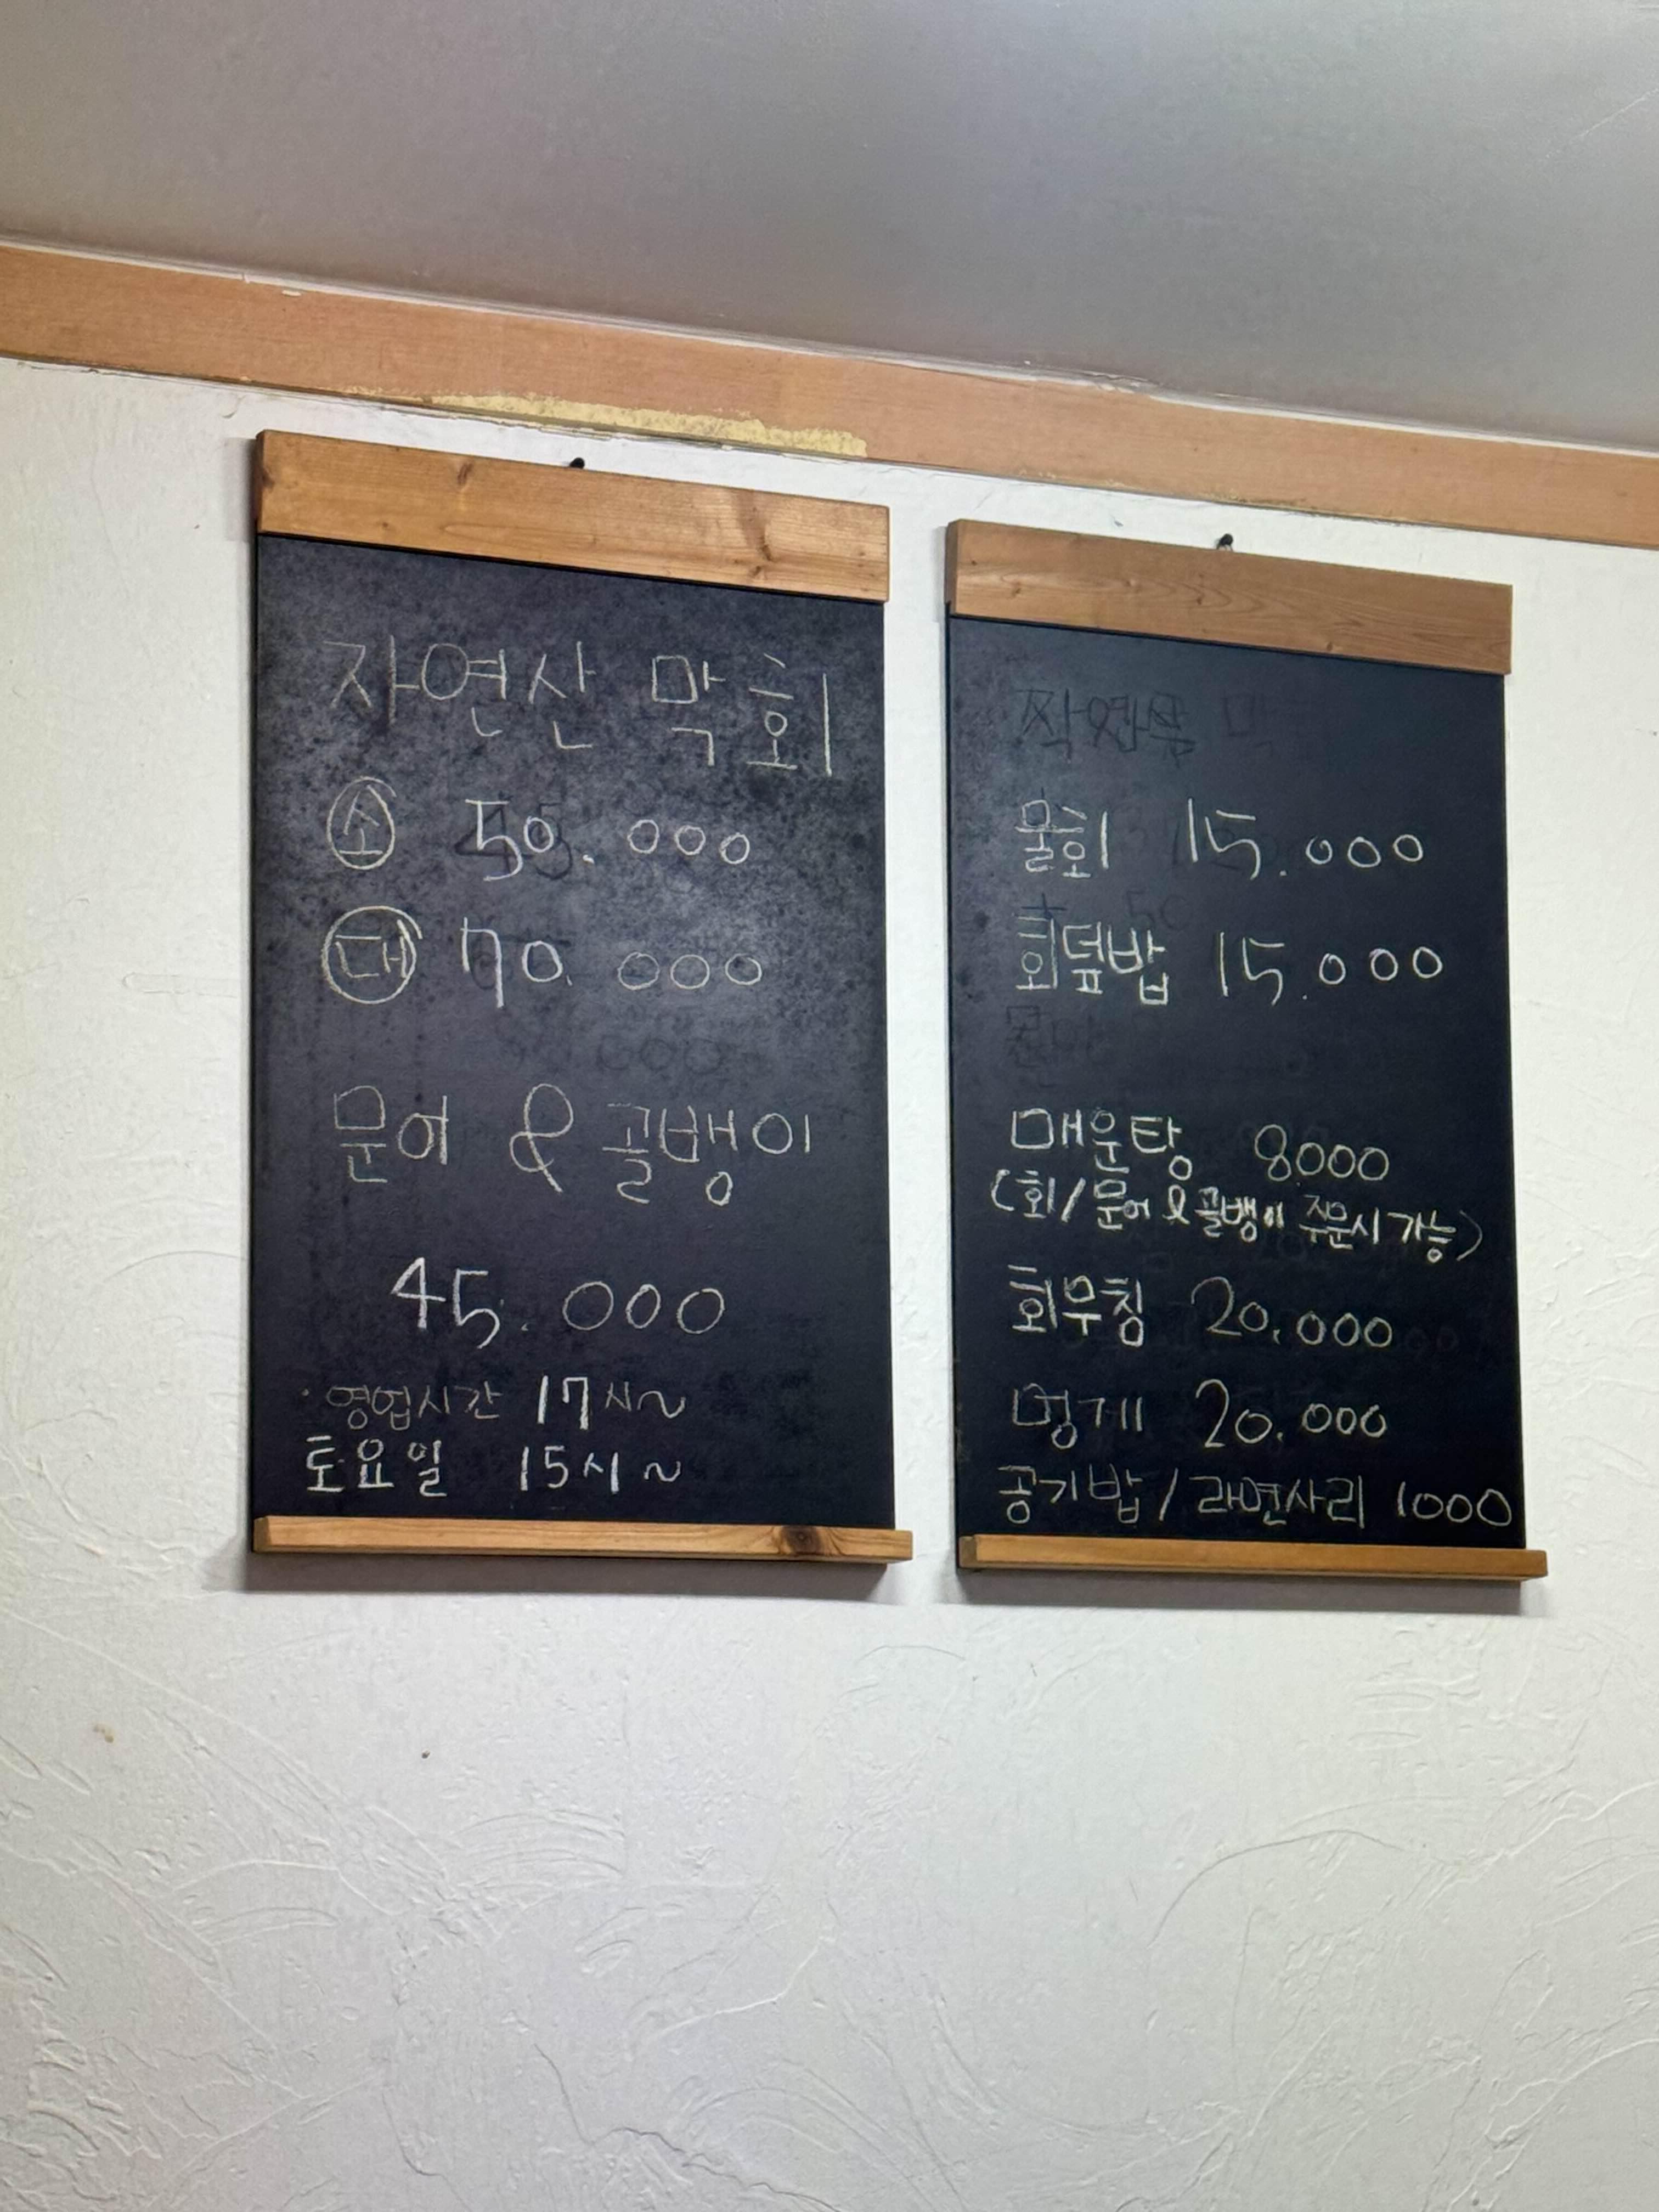 자연산 막회
소 50.000
대 70.000
문어 & 골뱅이
45.000
· 영업시간 17시~
토요일 15시~
물회 15.000
회덮밥 15.000
매운탕 8000
(회/문어&골뱅이 주문시 가능)
회무침 20.000
멍게 20.000
공기밥/라면사리 1000